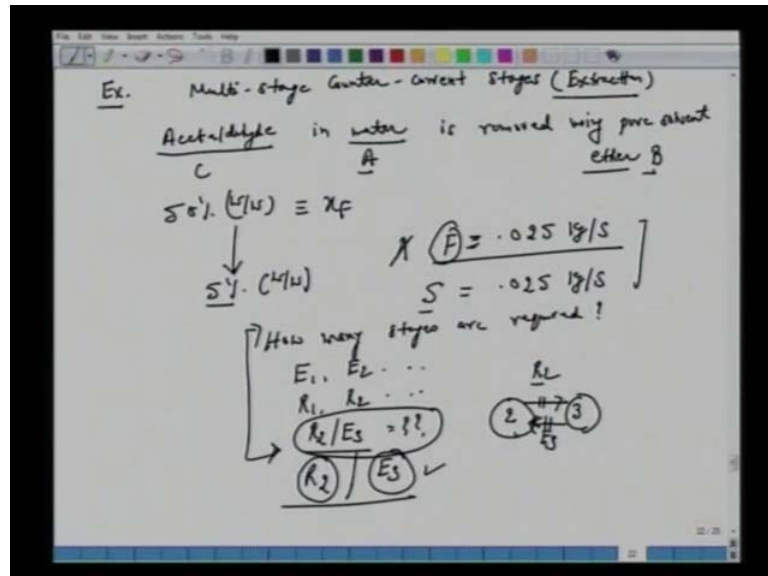 File Edit View Insert Actions Tools Help
Ex. Multi-stage Counter-current Stages (Extraction)
Acetaldehyde in water is removed using pure solvent
C A ether B
50%. (W/W) ≡ xF
5%. (W/W)
X F = .025 kg/s
S = .025 kg/s
How many stages are required?
E1, E2 ..
R1, R2 ..
R2/E3 = ??
R2 / E3 ✓
R2
2 3
E3
22/25
22